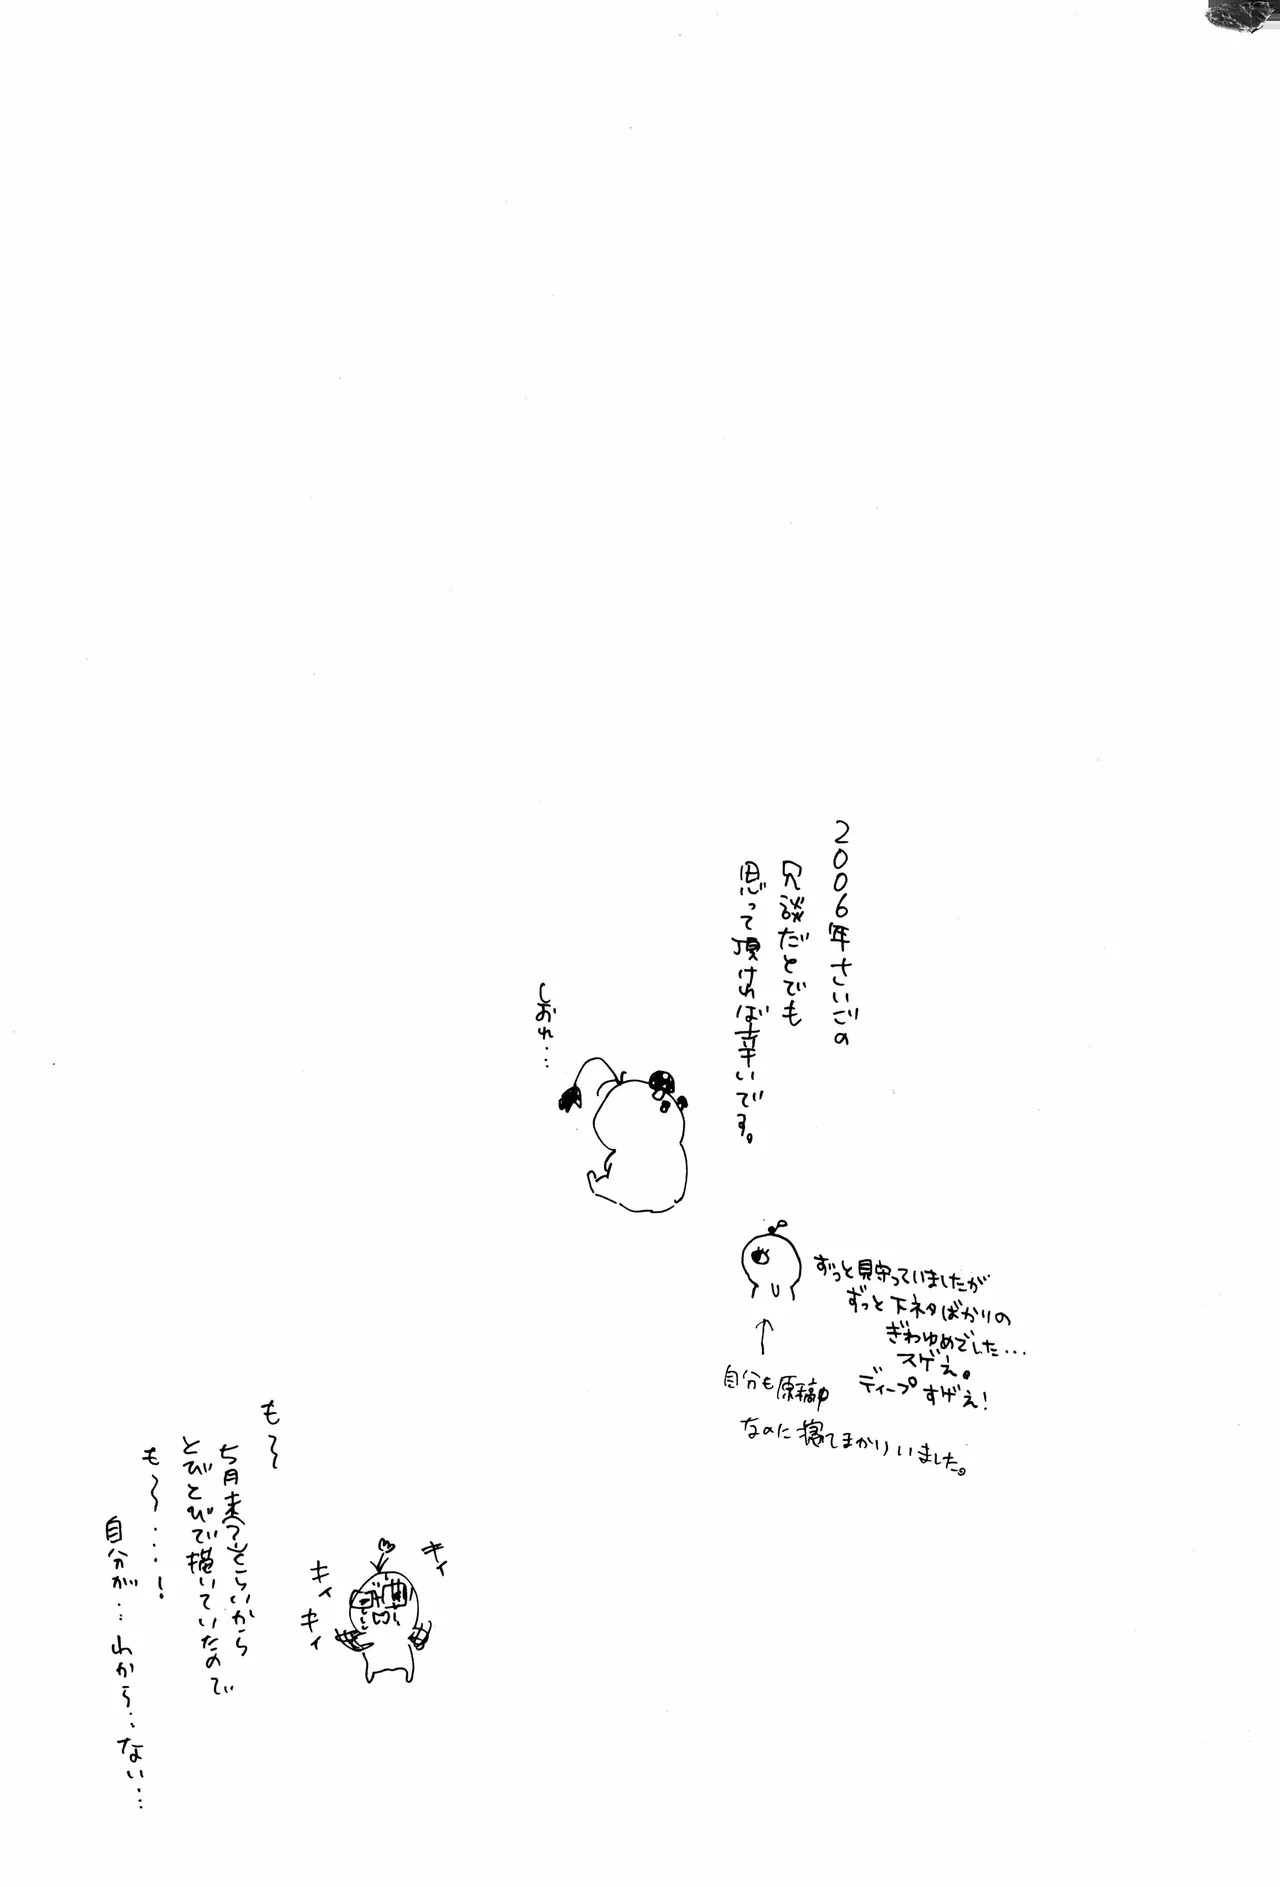 2006年さいごの
冗談だとでも
思って頂ければ幸いです。
しおれ…
ずっと見守っていましたが
ずっと下ネタばかりの
ぎわゆめでした…
スゲえ。
ディープすげえ!
自分も原稿中
なのに寝てまかりいました。
キィ
キィ
キィ
も〜
5月末(?)くらいから
とびとびで描いていたので
も〜…!
自分が…わから…ない…